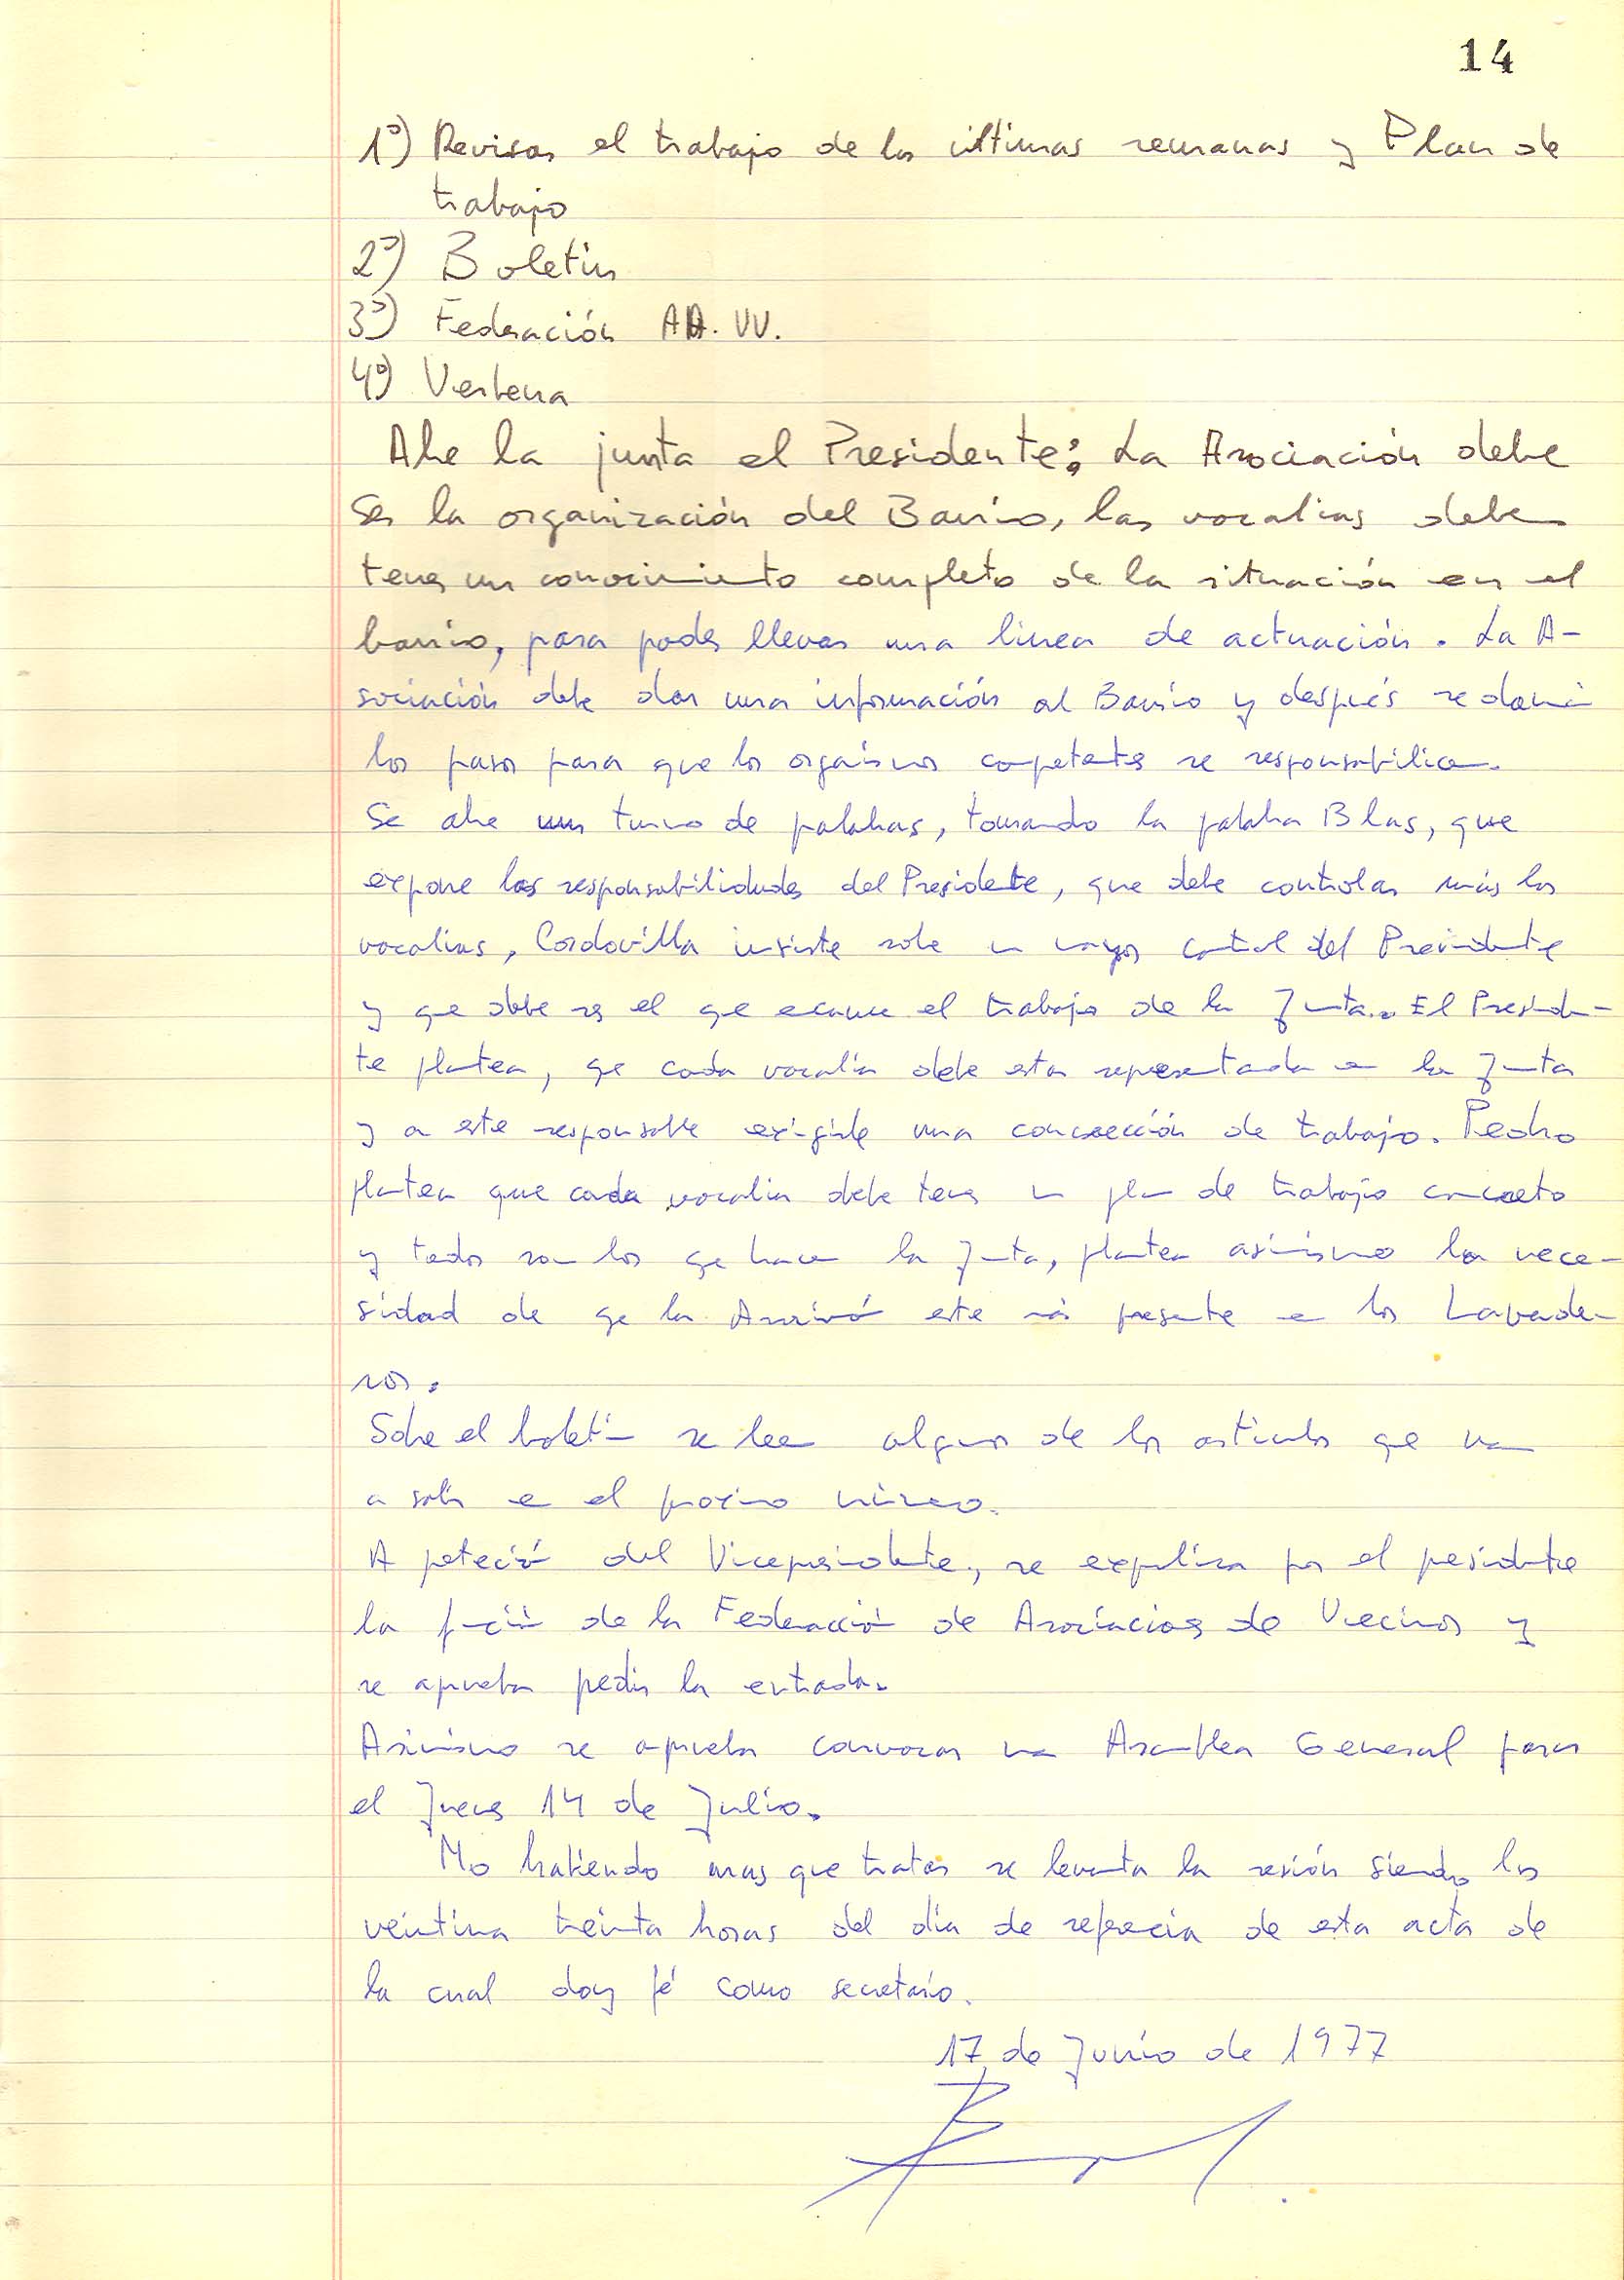 14
1º) Revisar el trabajo de las últimas semanas y Plan de
trabajo
2º) Boletín
3º) Federación AA. VV.
4º) Verbena
Abre la junta el Presidente: La Asociación debe
ser la organización del Barrio, las vocalias deben
tener un conocimiento completo de la situación en el
barrio, para poder llevar una linea de actuación. La A-
sociación debe dar una información al Barrio y después se daria
los pasos para que los organismos competentes se responsabilicen.
Se abre un turno de palabras, tomando la palabra Blas, que
expone las responsabilidades del Presidente, que debe controlar más las
vocalias, Cordovilla insiste sobre un mayor control del Presidente
y que debe ser el que encauce el trabajo de la Junta. El Presiden-
te plantea, que cada vocalia debe estar representada en la Junta
y a este responsable exigirle una concrección de trabajo. Pedro
plantea que cada vocalia debe tener un plan de trabajo concreto
y todos son los que hacen la Junta, plantea asimismo la nece-
sidad de que la Asociación este más presente en los Lavade-
ros.
Sobre el boletín se leen algunos de los articulos que van
a salir en el proximo número.
A peteción del Vicepresidente, se explica por el presidente
la función de la Federacción de Asociaciones de Vecinos y
se aprueba pedir la entrada.
Asimismo se aprueba convocar una Asamblea General para
el Jueves 14 de Julio.
No habiendo mas que tratar se levanta la sesión siendo las
veintiuna treinta horas del dia de referecia de esta acta de
la cual doy fé como secretario.
17 de Junio de 1977